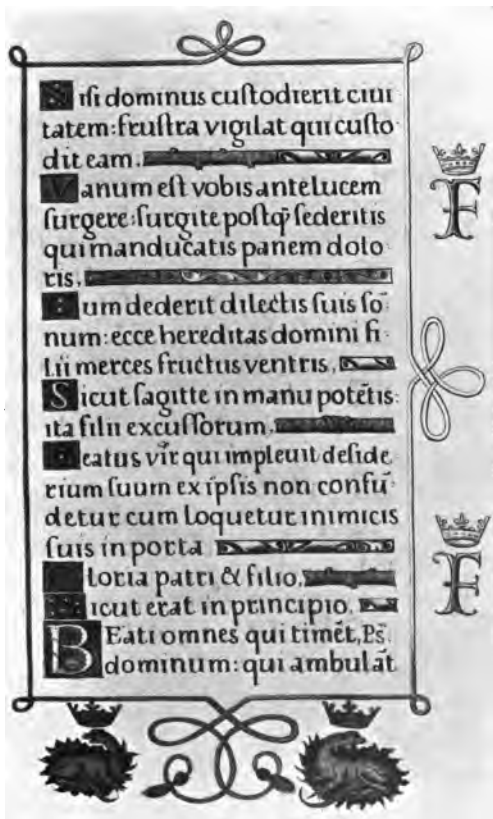 Niſi dominus cuſtodierit ciui
tatem: fruſtra vigilat qui cuſto
dit eam.
Vanum eſt vobis ante lucem
ſurgere: ſurgite poſtq̄ ſederitis
qui manducatis panem dolo
ris.
Cum dederit dilectis ſuis ſō
num: ecce hereditas domini fi
lii merces fructus ventris.
Sicut ſagitte in manu potētis:
ita filii excuſſorum.
Beatus vir qui impleuit deſide
rium ſuum ex ipſis non confū
detur cum loquetur inimicis
ſuis in porta
Gloria patri & filio.
Sicut erat in principio.
BEati omnes qui timēt, Ps̄.
dominum: qui ambulāt
F
F